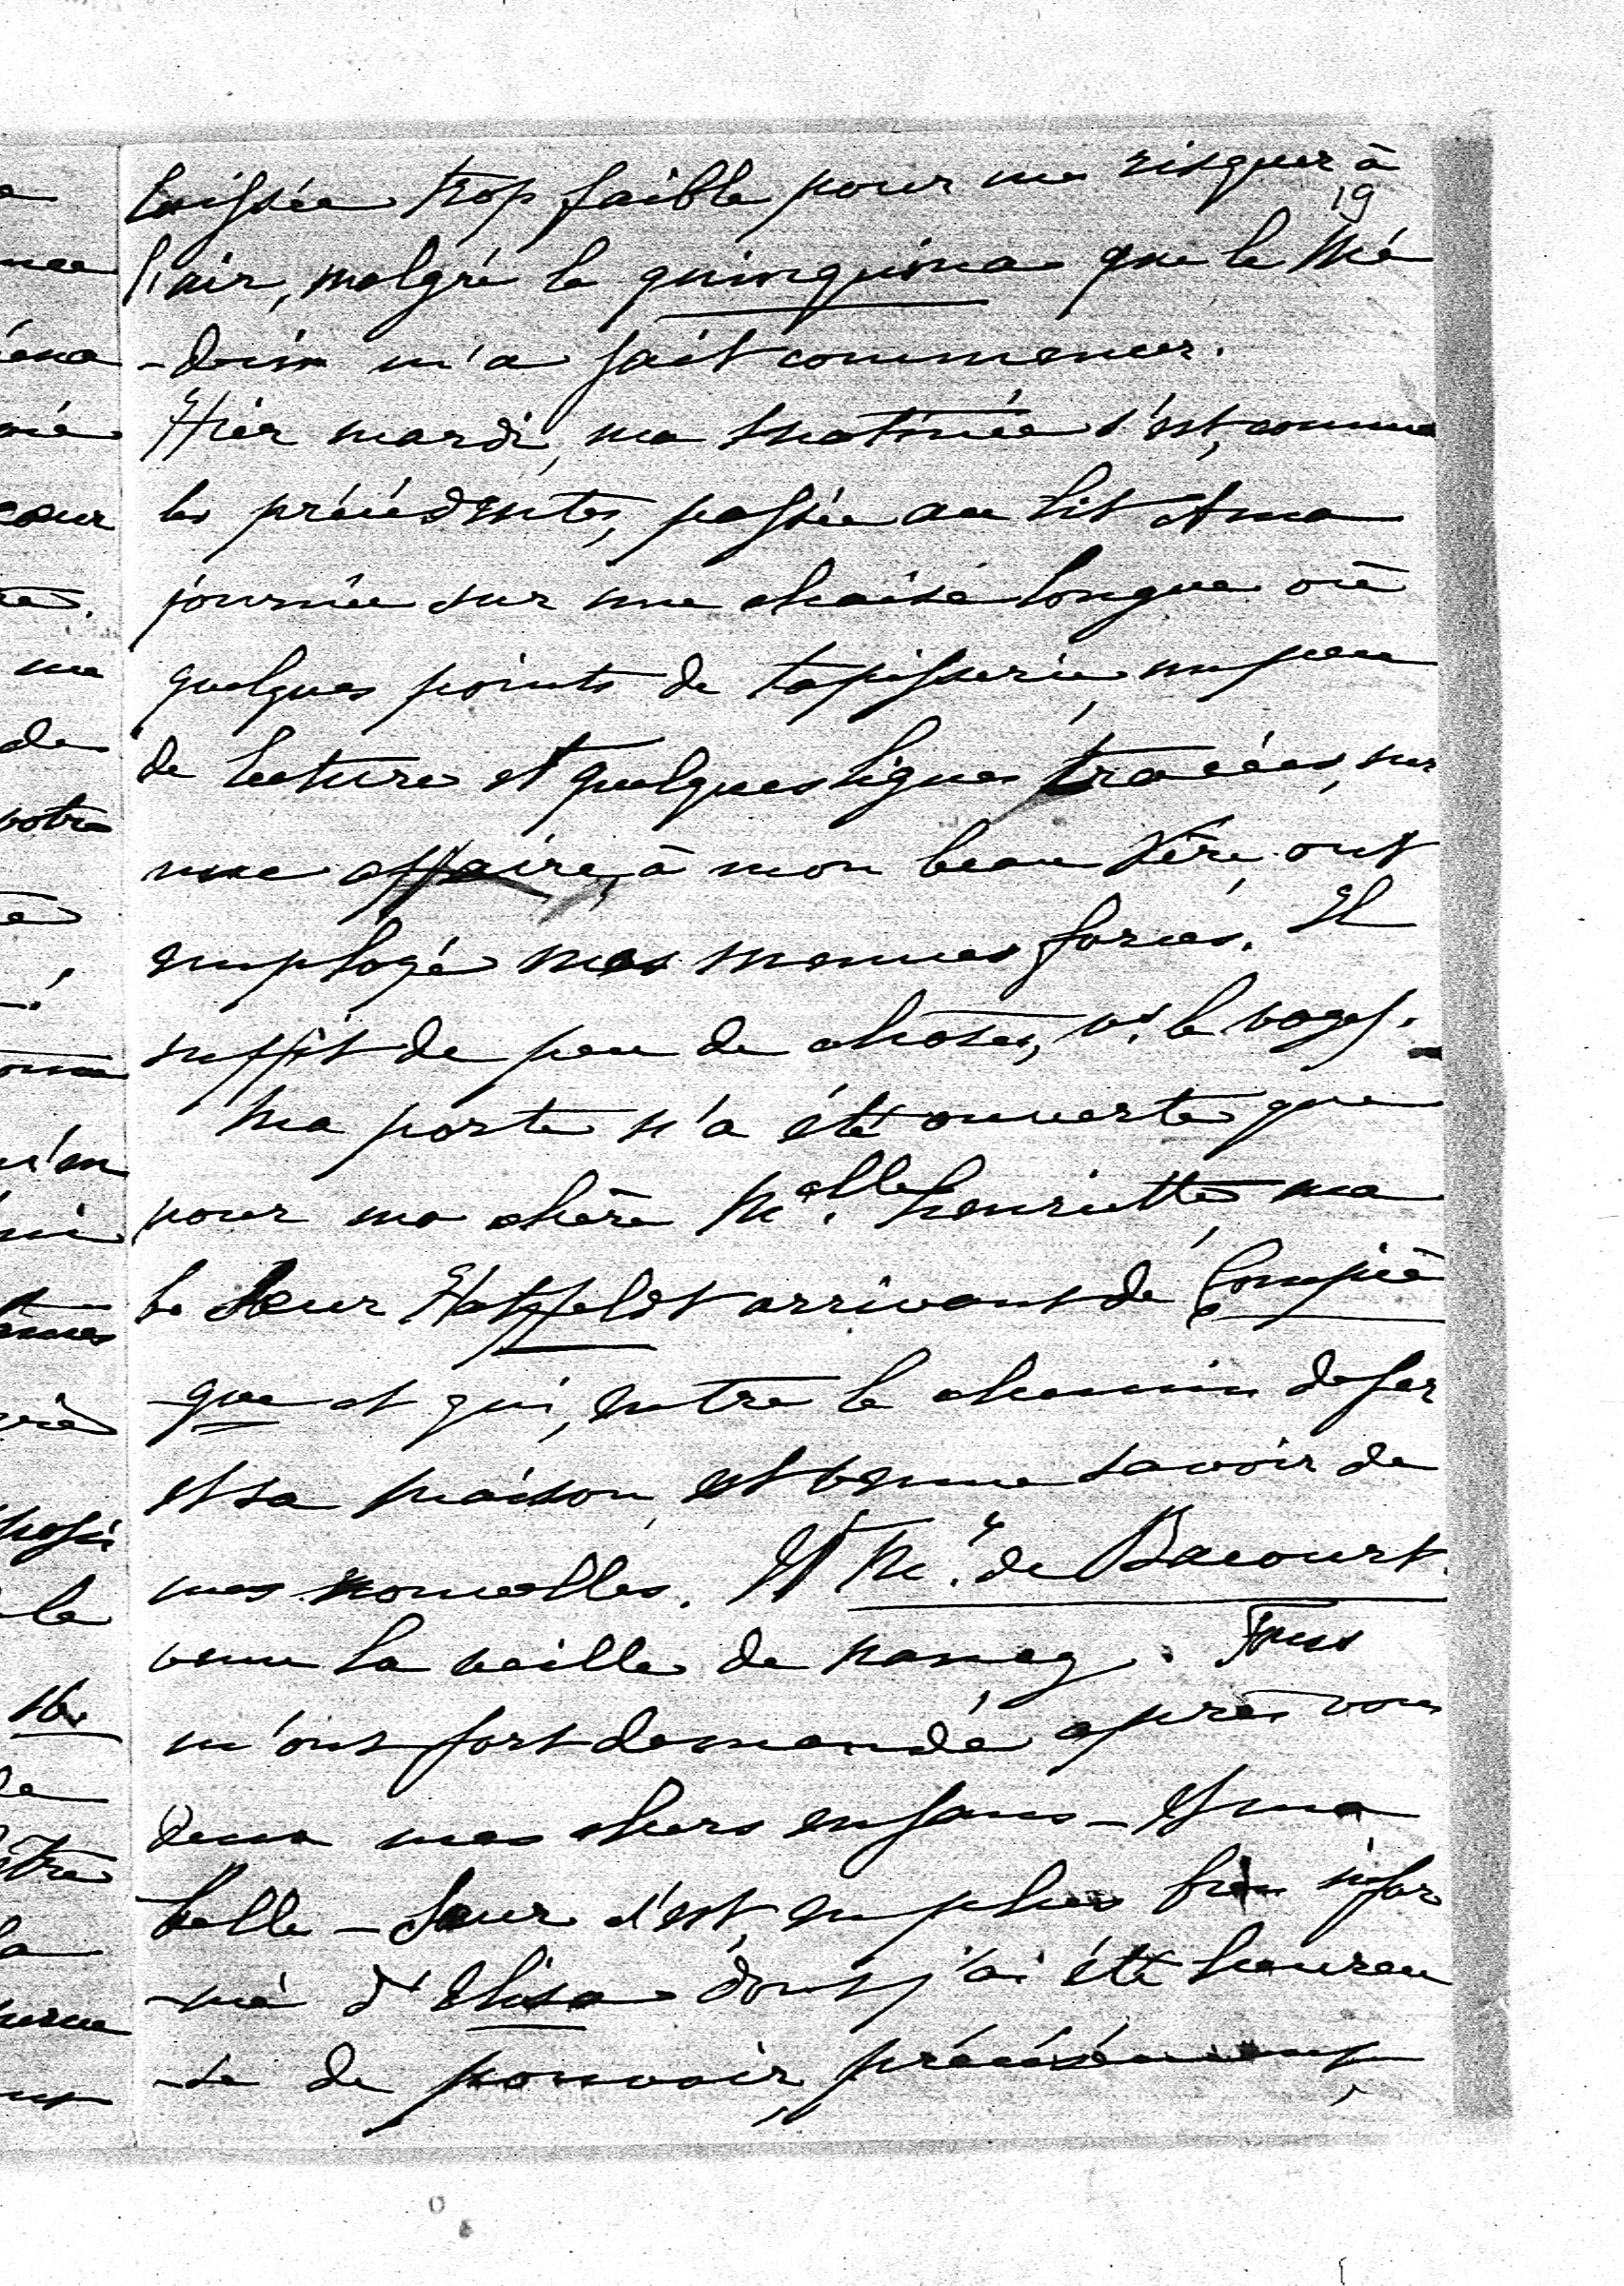 laissée trop faible pour me risquer à
19
l'air, malgré le quinquina que le Mé
-decin m'a fait commencer.
Hier mardi, ma matinée s'est, comme
les précédentes, passée au lit et ma
journée sur une chaise longue où
quelques points de tapisserie, un peu
de lecture et quelques lignes tracées, sur
une affaire, à mon beau Père, ont
employé mes menues forces. Il
suffit de peu de choses, vs. le voyez.
Ma porte n'a été ouverte que
pour ma chère Melle. henriette, ma
be Sœur Hatzfeldt arrivant de Compiè
gne et qui, entre le chemin de fer
et sa maison, est venue savoir de
mes nouvelles. Et Mr. de Bacourt.
venu la veille de nancy. Tous
m'ont fort demandé après vous
deux mes chers enfans - Et ma
belle - Sœur s'est, en plus, bien infor
-mé d'Elisa dont j'ai été heureu
-se de pouvoir, précisément,